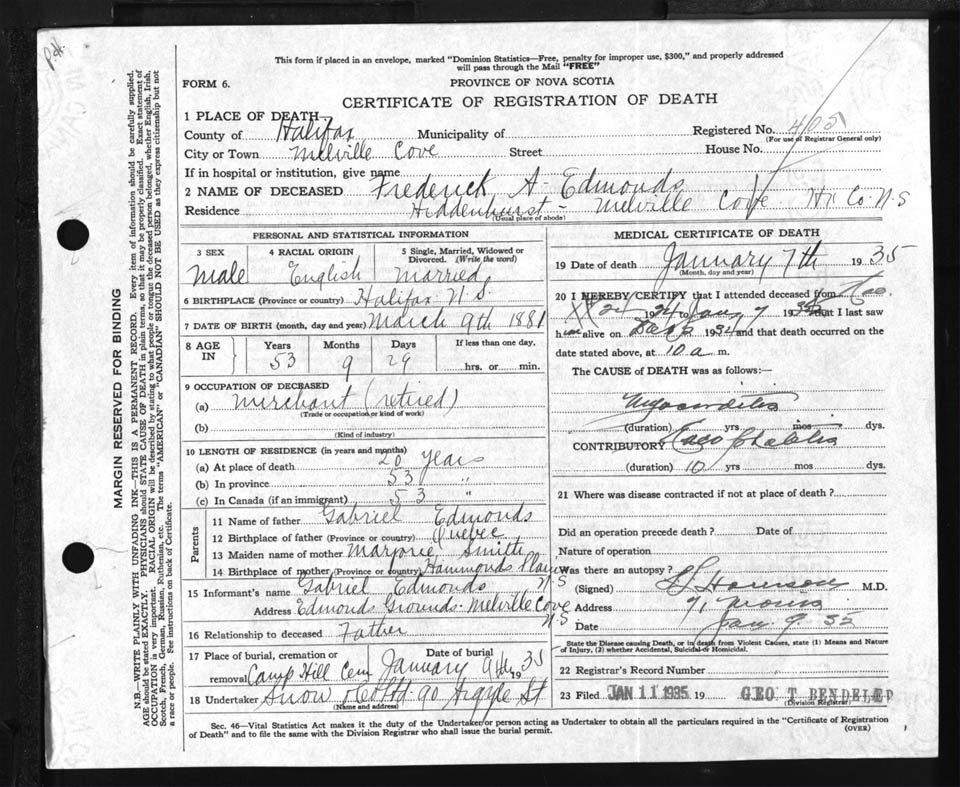 This form if placed in an envelope, marked "Dominion Statistics—Free, penalty for improper use, $300," and properly addressed
will pass through the Mail "FREE"
FORM 6.
PROVINCE OF NOVA SCOTIA
CERTIFICATE OF REGISTRATION OF DEATH
1 PLACE OF DEATH—
County of Halifax Municipality of Registered No. 405
(For use of Registrar General only)
City or Town Melville Cove Street House No.
If in hospital or institution, give name
2 NAME OF DECEASED Frederick A Edmonds
Residence Hiddenhurst - Melville Cove Hx Co. N.S
(Usual place of abode)
PERSONAL AND STATISTICAL INFORMATION
3 SEX 4 RACIAL ORIGIN 5 Single, Married, Widowed or Divorced. (Write the word)
Male English Married
6 BIRTHPLACE (Province or country) Halifax N.S.
7 DATE OF BIRTH (month, day and year) March 9th 1881
8 AGE IN Years Months Days If less than one day,
53 9 29 hrs. or min.
9 OCCUPATION OF DECEASED
(a) Merchant (retired)
(Trade or occupation or kind of work)
(b)
(Kind of industry)
10 LENGTH OF RESIDENCE (in years and months)
(a) At place of death 20 years
(b) In province 53 "
(c) In Canada (if an immigrant) 53 "
Parents
11 Name of father Gabriel Edmonds
12 Birthplace of father (Province or country) Quebec
13 Maiden name of mother Marjorie Smith
14 Birthplace of mother (Province or country) Hammonds Plains N.S
15 Informant's name Gabriel Edmonds
Address Edmonds Grounds - Melville Cove N.S
16 Relationship to deceased Father
17 Place of burial, cremation or removal Camp Hill Cem Date of burial January 9th 1935
18 Undertaker Snow & Co Ltd. 90 Argyle St
(Name and address)
MEDICAL CERTIFICATE OF DEATH
19 Date of death January 7th 1935
(Month, day and year)
20 I HEREBY CERTIFY that I attended deceased from Dec.
to Jany 7 that I last saw
h im alive on 1934 and that death occurred on the
date stated above, at 10 a m.
The CAUSE of DEATH was as follows:
Myocarditis
(duration) yrs mos dys.
CONTRIBUTORY
(duration) 10 yrs mos dys.
21 Where was disease contracted if not at place of death?
Did an operation precede death? Date of
Nature of operation
Was there an autopsy?
(Signed) M.D.
Address 71 Morris
Date Jan. 9. 35
State the Disease causing Death, or in death from Violent Causes, state (1) Means and Nature
of Injury, (2) whether Accidental, Suicidal or Homicidal.
22 Registrar's Record Number
23 Filed JAN 11 1935 19 GEO T. BENDELEP
(Division Registrar)
Sec. 46—Vital Statistics Act makes it the duty of the Undertaker or person acting as Undertaker to obtain all the particulars required in the "Certificate of Registration
of Death" and to file the same with the Division Registrar who shall issue the burial permit.
(OVER)
MARGIN RESERVED FOR BINDING
N.B.—WRITE PLAINLY WITH UNFADING INK—THIS IS A PERMANENT RECORD. Every item of information should be carefully supplied.
AGE should be stated EXACTLY. PHYSICIANS should STATE CAUSE OF DEATH in plain terms, so that it may be properly classified. Exact statement of
OCCUPATION is very important. RACIAL ORIGIN will be described by stating to what people or tongue the deceased person belonged, whether English, Irish,
Scotch, French, German, Russian, Ruthenian, etc. The terms "AMERICAN" or "CANADIAN" SHOULD NOT BE USED as they express citizenship but not
a race or people. See instructions on back of Certificate.